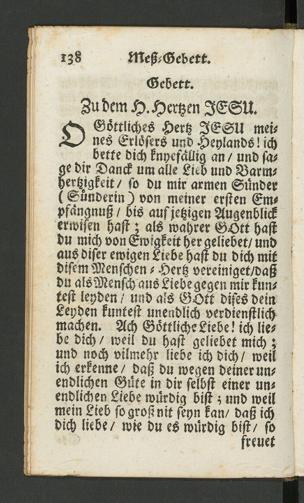 138 Meß-Gebett.
Gebett.
Zu dem H. Hertzen JESU.
O Göttliches Hertz JESU mei-
nes Erlösers und Heylands! ich
bette dich knyefällig an / und sa-
ge dir Danck um alle Lieb und Barm-
hertzigkeit / so du mir armen Sünder
(Sünderin) von meiner ersten Em-
pfängnuß / bis auf jetzigen Augenblick
erwisen hast; als wahrer GOtt hast
du mich von Ewigkeit her geliebet / und
aus diser ewigen Liebe hast du dich mit
disem Menschen-Hertz vereiniget / daß
du als Mensch aus Liebe gegen mir kun-
test leyden / und als GOtt dises dein
Leyden kuntest unendlich verdienstlich
machen. Ach Göttliche Liebe! ich lie-
be dich / weil du hast geliebet mich;
und noch vilmehr liebe ich dich / weil
ich erkenne / daß du wegen deiner un-
endlichen Güte in dir selbst einer un-
endlichen Liebe würdig bist; und weil
mein Lieb so groß nit seyn kan / daß ich
dich liebe / wie du es würdig bist / so
freuet